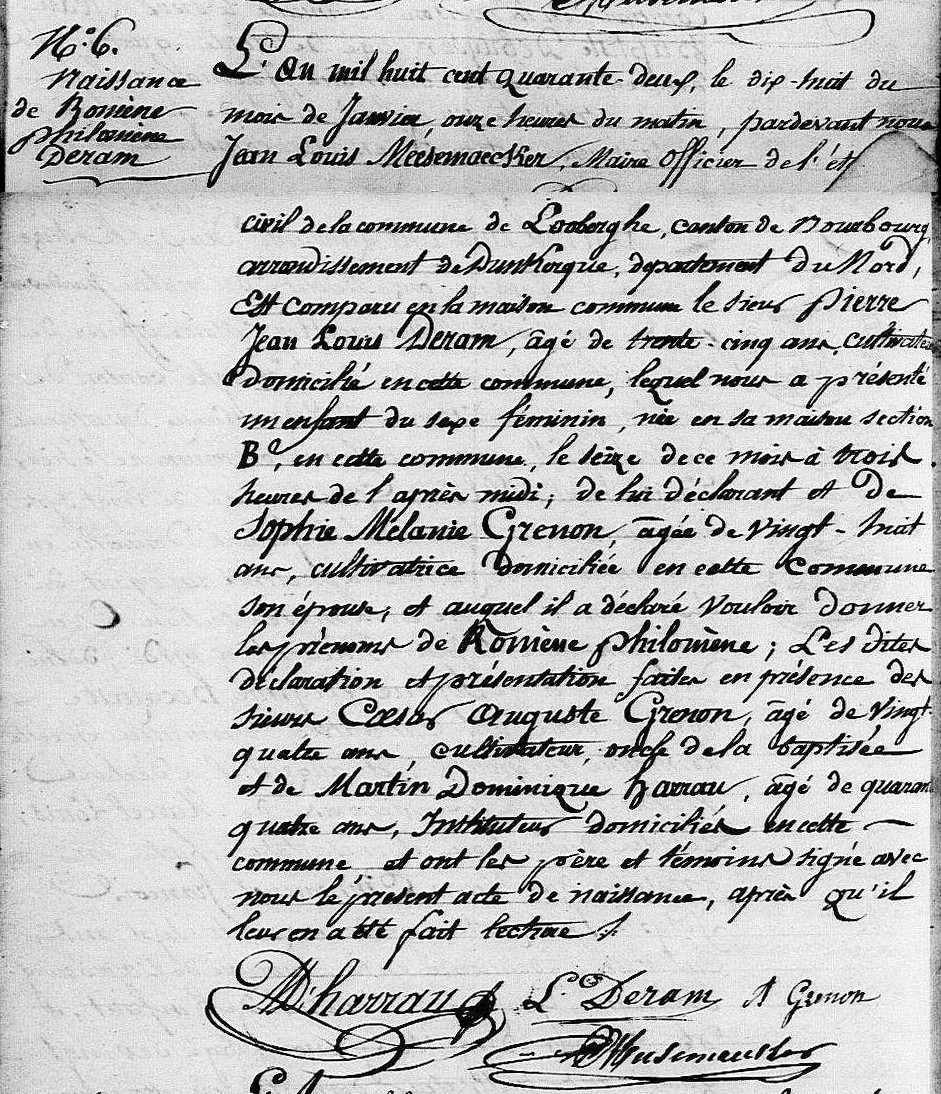 N.° 6.
Naissance
de Romène
philomène
Deram
L'An mil huit cent quarante-deux, le dix-huit du
mois de Janvier, onze heures du matin, pardevant nous
Jean Louis Meesemaecker, Maire Officier de l'ét
civil de la commune de Looberghe, canton de Bourbourg,
arrondissement de Dunkerque, département du Nord,
Est comparu en la maison commune le sieur Pierre
Jean Louis Deram, âgé de trente-cinq ans, cultivateur
domicilié en cette commune, lequel nous a présenté
un enfant du sexe féminin, née en sa maison section
B.e, en cette commune, le seize de ce mois à trois
heures de l'après midi; de lui déclarant et de
Sophie Mélanie Grenon, âgée de vingt-huit
ans, cultivatrice domiciliée en cette commune
son épouse; et auquel il a déclaré vouloir donner
les prénoms de Romène philomène; Les dites
déclaration et présentation faites en présence des
sieurs Cæsar Auguste Grenon, âgé de vingt-
quatre ans, cultivateur, oncle de la baptisée
et de Martin Dominique harrau, âgé de quarante
quatre ans, Instituteur domiciliés en cette
commune et ont les père et témoins signé avec
nous le présent acte de naissance, après qu'il
leur en a été fait lecture ./.
MD harrau L. Deram A Grenon
Meesemaecker